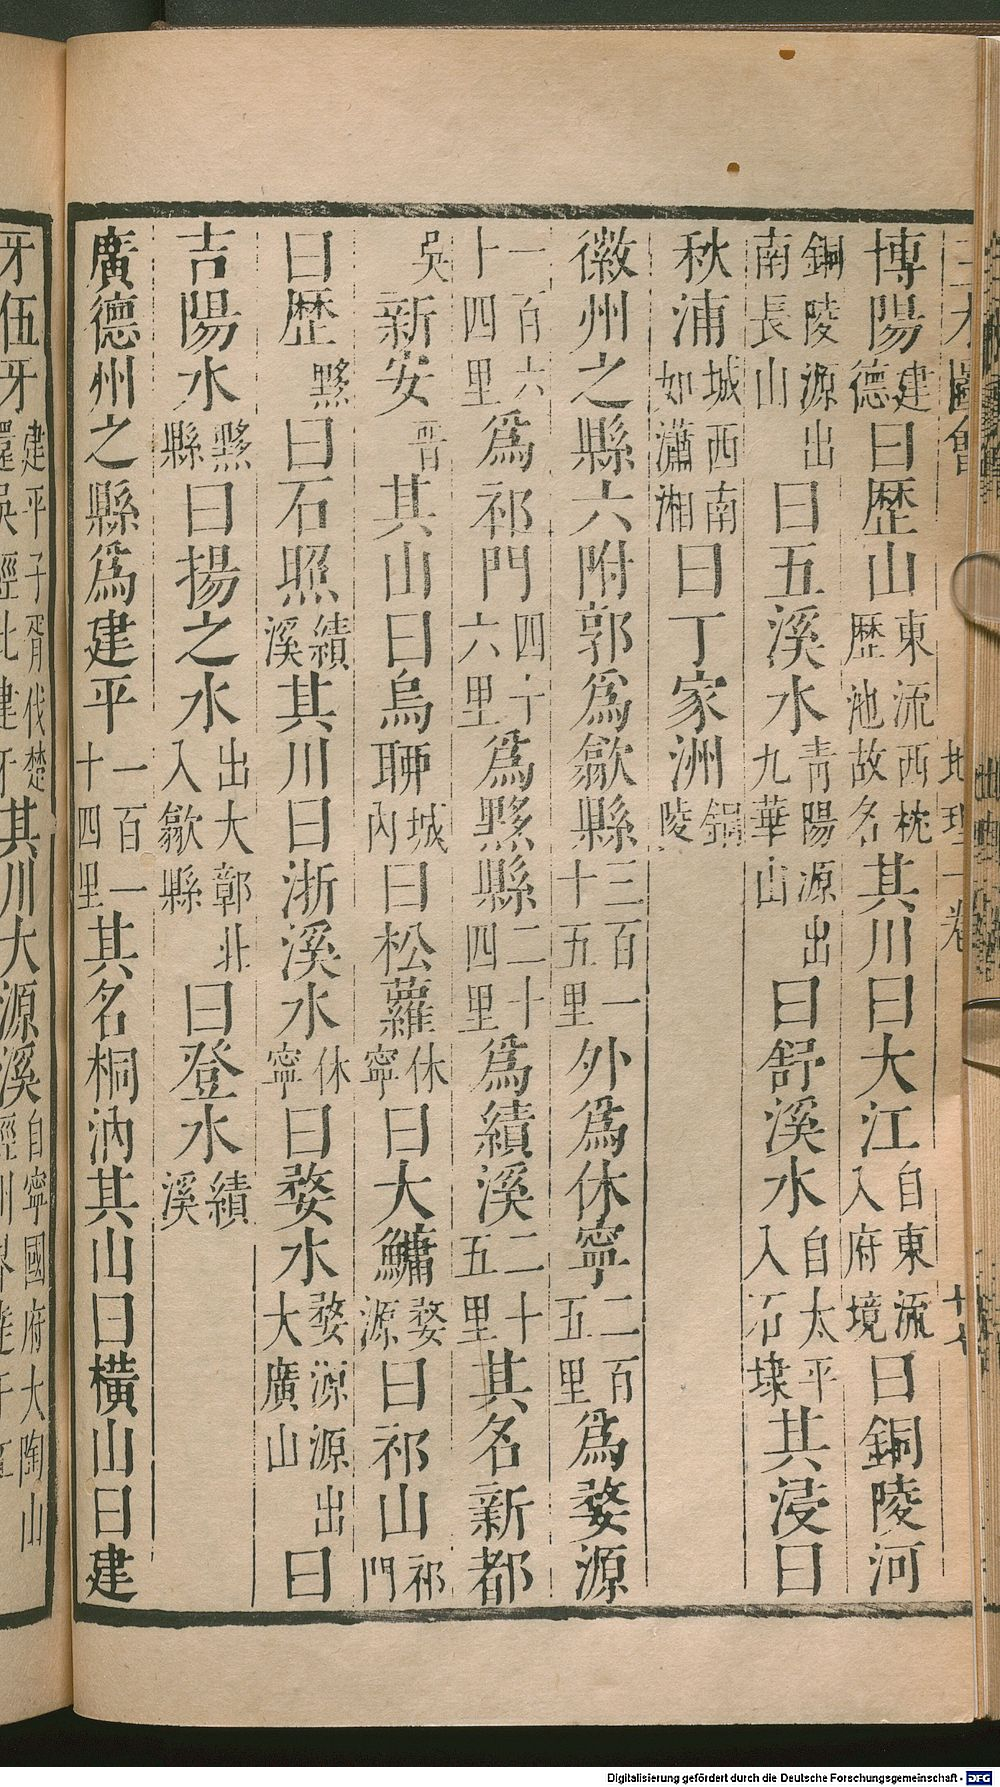 博陽建德曰歷山東流西枕歷池故名其川曰大江自東流入府境曰銅陵河
銅陵源出南長山曰五溪水青陽源出九華山曰舒溪水自太平入石埭其浸曰
秋浦城西南如瀟湘曰丁家洲銅陵
徽州之縣六附郭爲歙縣三百一十五里外爲休寧二百五里爲婺源
一百六十四里爲祁門四十六里爲黟縣二十四里爲績溪二十五里其名新都
吳新安晉其山曰烏聊城內曰松蘿休寧曰大鱅婺源曰祁山祁門
曰歷黟曰石照績溪其川曰浙溪水休寧曰婺水婺源源出大廣山曰
吉陽水黟縣曰揚之水出大鄣北入歙縣曰登水績溪
廣德州之縣爲建平一百一十四里其名桐汭其山曰橫山曰建
牙伍牙建平子胥伐楚還吳經此建牙其川大源溪自寧國府大陶山
Digitalisierung gefördert durch die Deutsche Forschungsgemeinschaft - DFG